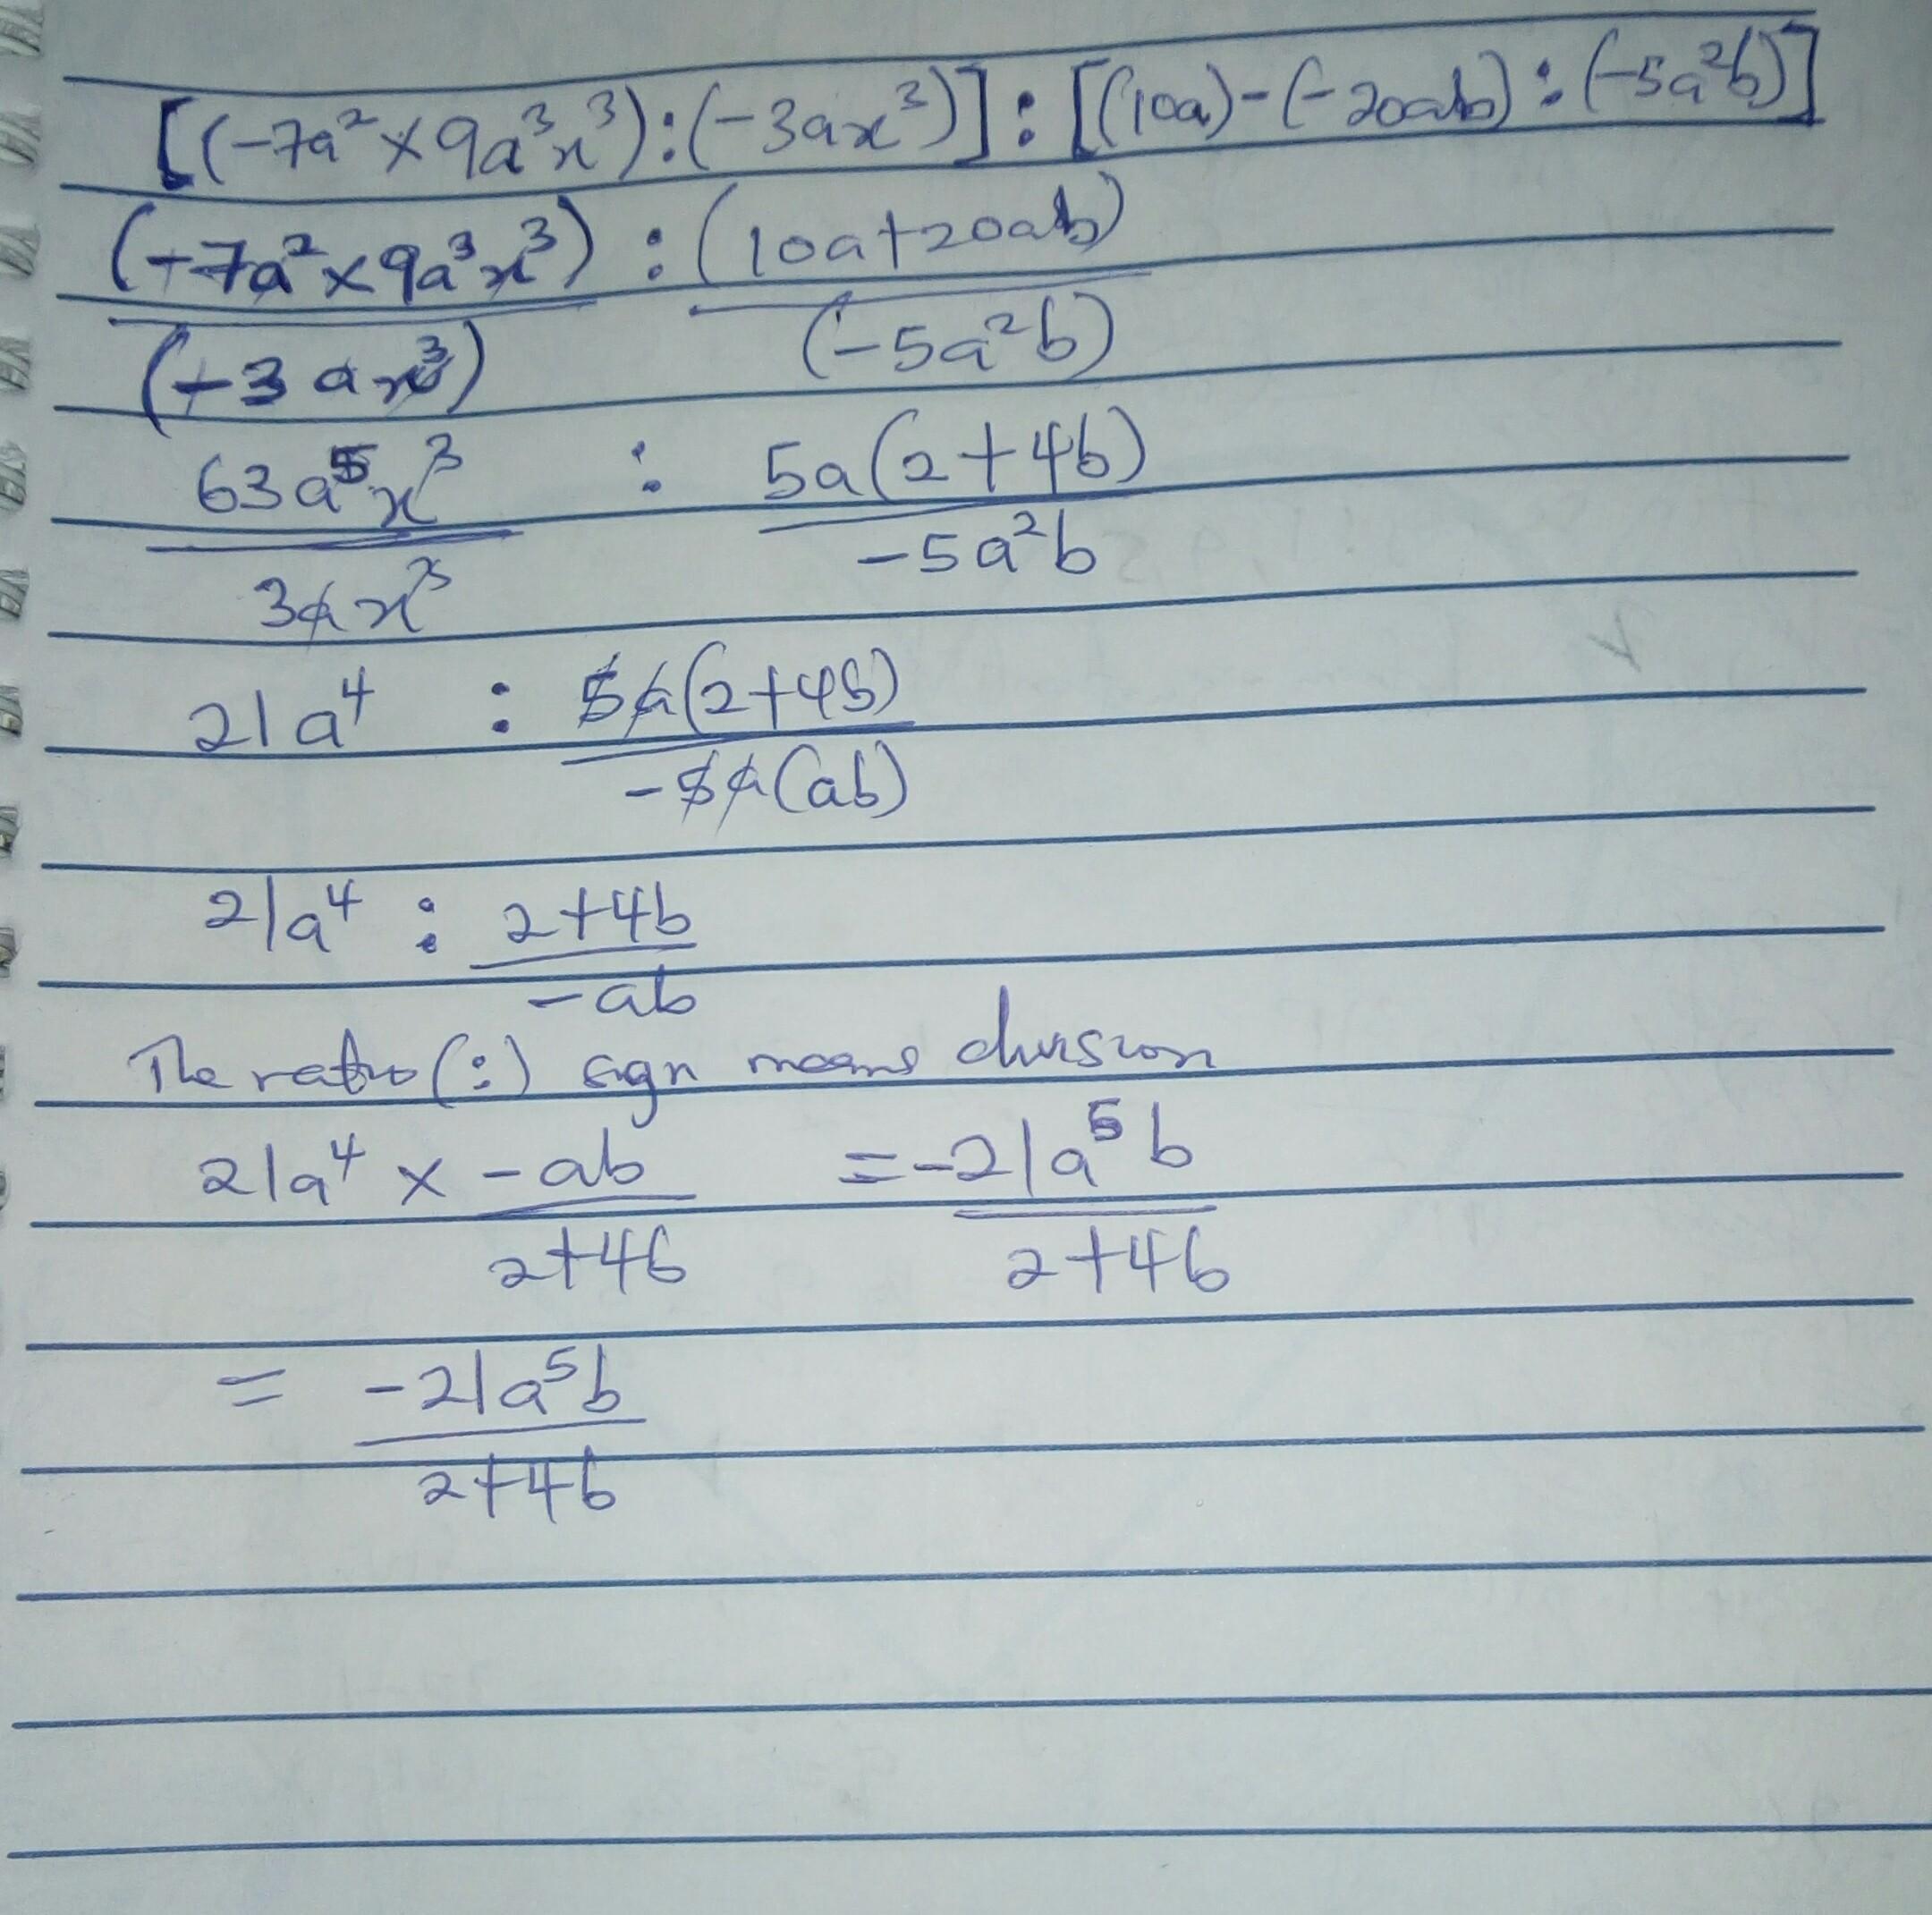 [(-7a² × 9a³x³):(-3ax³)] : [(10a)-(-20ab) : (-5a²b)]
(-7a² × 9a³x³) : (10a+20ab)
(-3ax³) (-5a²b)
63a⁵x³ : 5a(2+4b)
3ax³ -5a²b
21a⁴ : 5a(2+4b)
-5a(ab)
21a⁴ : 2+4b
-ab
The ratio (:) sign means division
21a⁴ × -ab = -21a⁵b
2+4b 2+4b
= -21a⁵b
2+4b